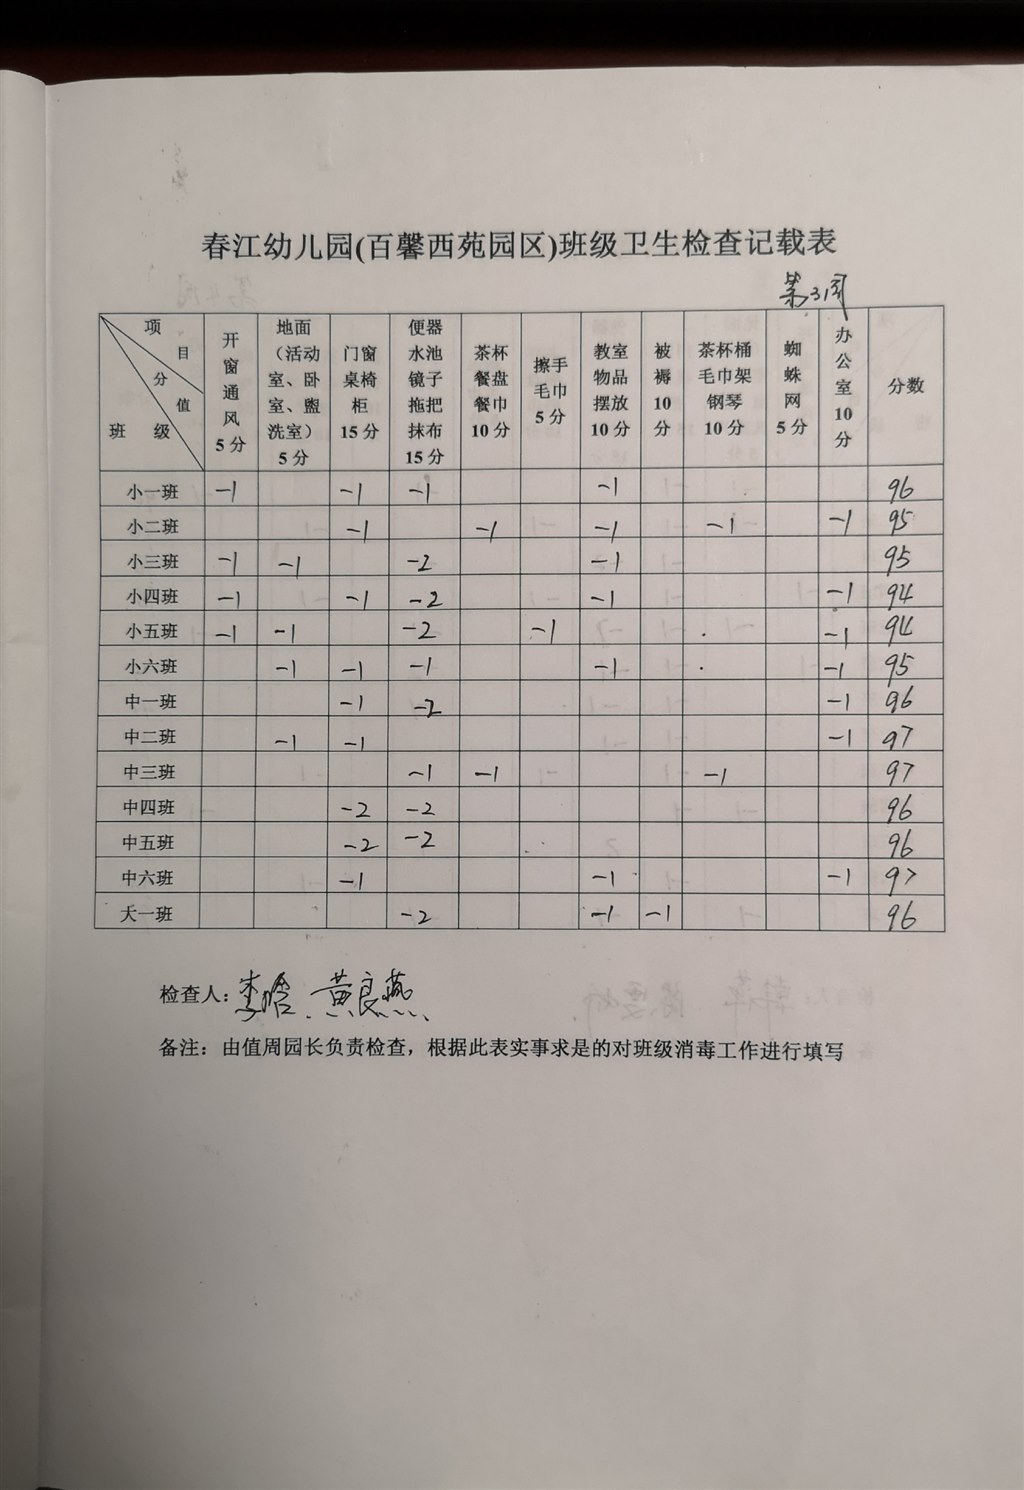 春江幼儿园(百馨西苑园区)班级卫生检查记载表
第3周
项目 分值 班级 开窗通风5分 地面（活动室、卧室、盥洗室）5分 门窗桌椅柜15分 便器水池镜子拖把抹布15分 茶杯餐盘餐巾10分 擦手毛巾5分 教室物品摆放10分 被褥10分 茶杯桶毛巾架钢琴10分 蜘蛛网5分 办公室10分 分数
小一班 -1 -1 -1 -1 96
小二班 -1 -1 -1 -1 -1 95
小三班 -1 -1 -2 -1 95
小四班 -1 -1 -2 -1 -1 94
小五班 -1 -1 -2 -1 -1 94
小六班 -1 -1 -1 -1 -1 95
中一班 -1 -2 -1 96
中二班 -1 -1 -1 97
中三班 -1 -1 -1 97
中四班 -2 -2 96
中五班 -2 -2 96
中六班 -1 -1 -1 97
大一班 -2 -1 -1 96
检查人： 黄良燕
备注：由值周园长负责检查，根据此表实事求是的对班级消毒工作进行填写